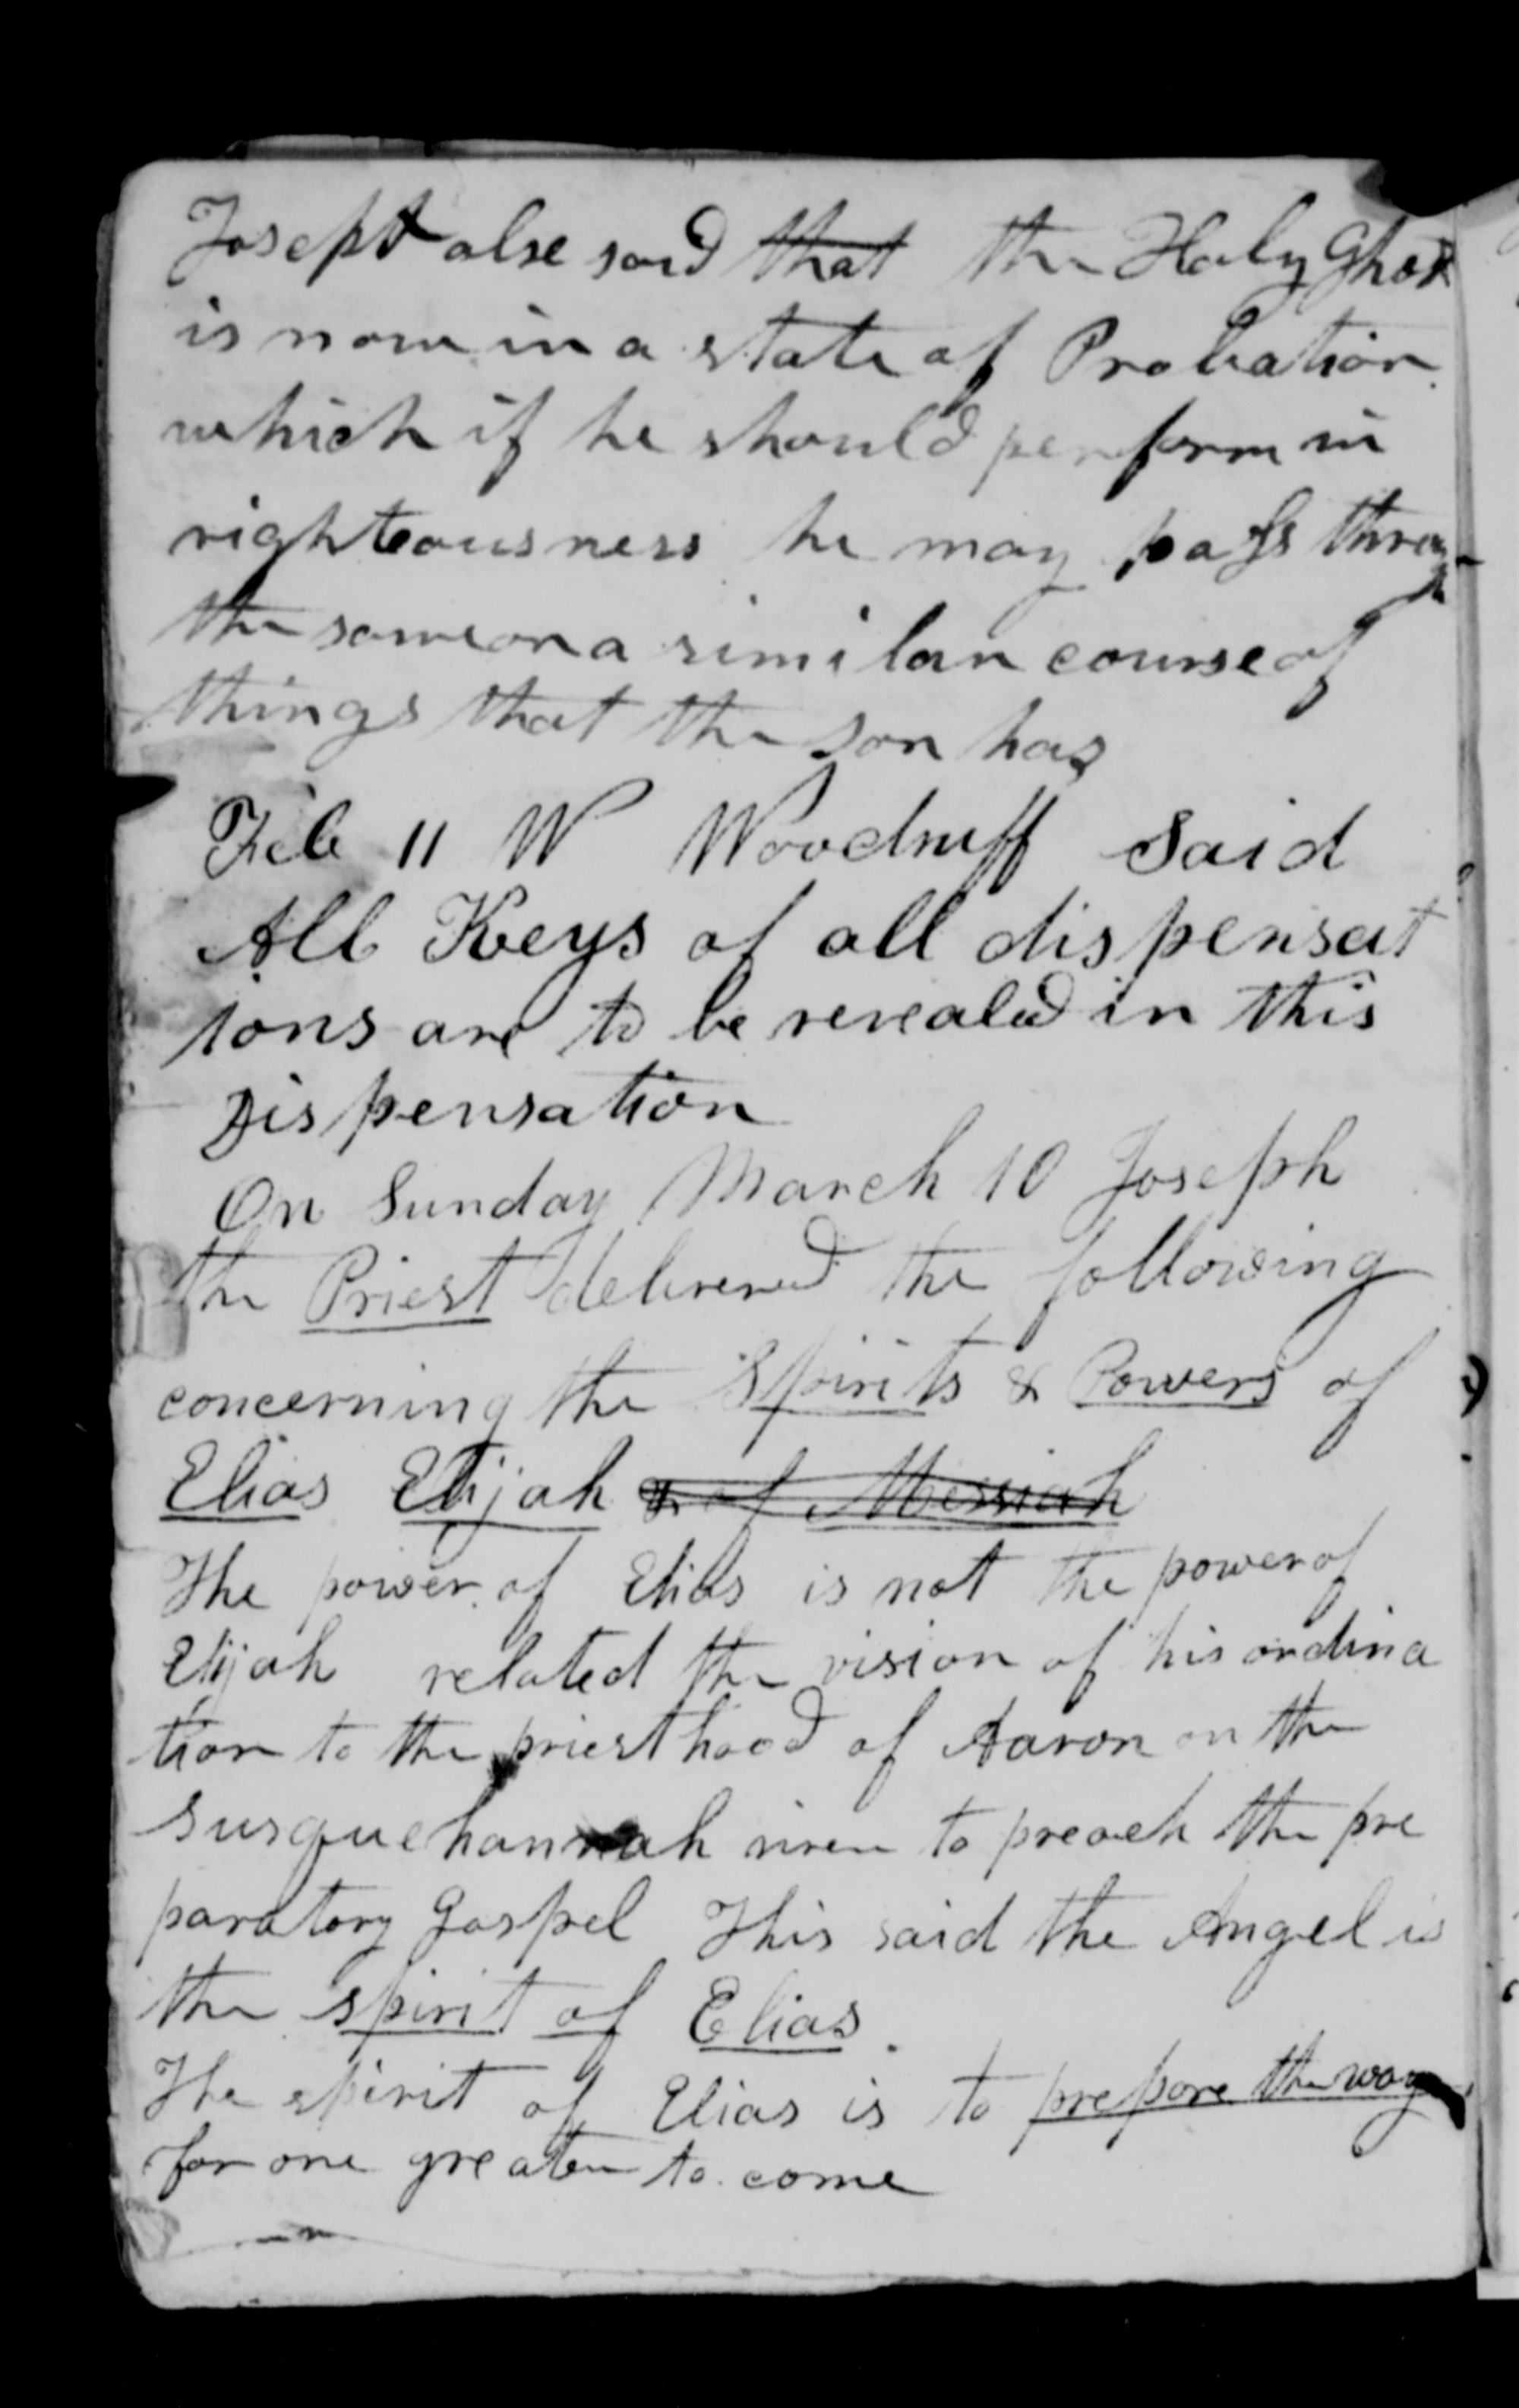 Joseph also said that the Holy Ghost
is now in a state of Probation
which if he should perform in
righteousness he may pass through
the same or a similar course of
things that the son has
Feb 11 W Woodruff Said
All Keys of all dispensat
ions are to be revealed in this
Dispensation
On Sunday March 10 Joseph
the Priest delivered the following
concerning the Spirits & Powers of
Elias Elijah & of Messiah
The power of Elias is not the power of
Elijah related the vision of his ordina
tion to the priesthood of Aaron on the
Susquehannah river to preach the pre
paratory Gospel This said the Angel is
the spirit of Elias.
The spirit of Elias is to prepare the way
for one greater to come